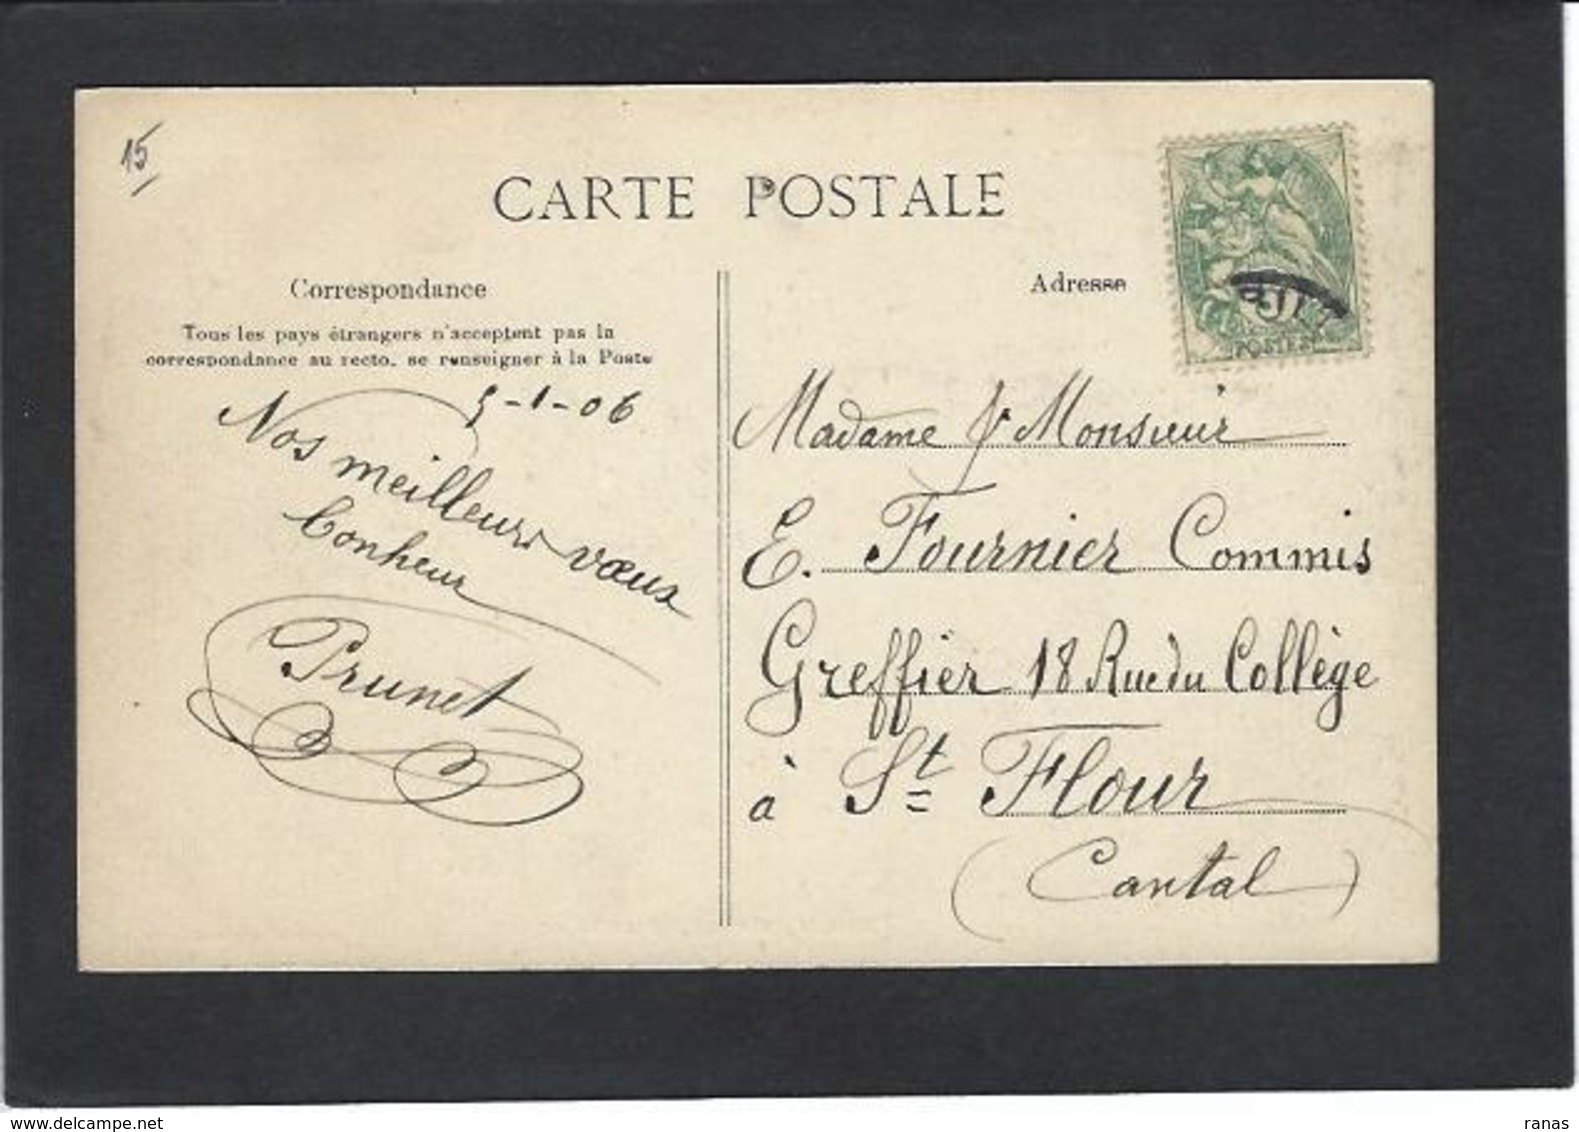 15
CARTE POSTALE
Correspondance
Tous les pays étrangers n'acceptent pas la
correspondance au recto, se renseigner à la Poste
5-1-06
Nos meilleurs vœux
bonheur
Prunet
Adresse
POSTES
Madame & Monsieur
E. Fournier Commis
Greffier 18 Rue du Collège
à St Flour
(Cantal)
delcampe.net
ranas